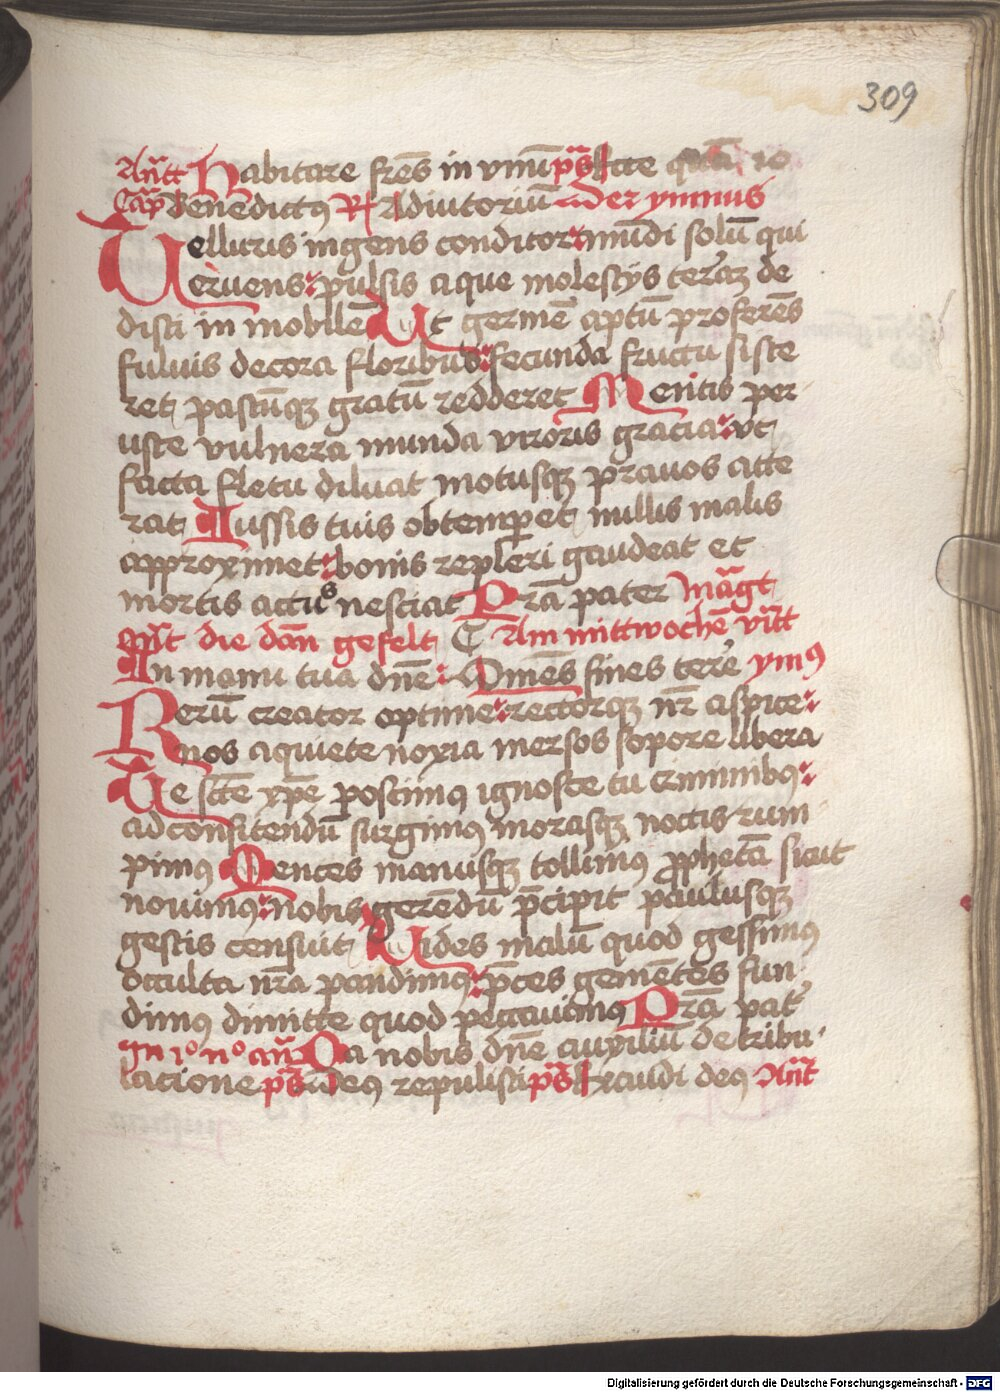 309
Antt Habitare frēs in vnū ps Ecce quā io
Cap Benedictꝰ R Adiutoriū Der ymnus
Telluris ingens conditor mūdi solū qui
eruens pulsis aque molestys terāz de
disti in mobilē Ut germē aptū proferēs
fuluis decora floribus fecunda fructu siste
ret pastūqꝫ gratū redderet Mentis per
uste vulnera munda viroris gracia vt
facta fletu diluat motusqꝫ prauos atte
rat Iussis tuis obtemperet nullis malis
approximet bonis repleri gaudeat et
mortis actus nesciat Prā pater māgt
die dām gefelt C Am mittwochē vītt
In manu tua dn̄e Om̄es fines terē ymꝰ
Rerū creator optime rectorqꝫ nr̄ aspice
nos a quiete noxia mersos sopore libera
Te sctē xp̄e poscimꝰ ignosce tu criminibꝰ
ad confitendū surgimꝰ morasqꝫ noctis rum
pimꝰ Mentes manusqꝫ tollimus prophetā sicut
nouimꝰ nobis gerēdū p̄cipit paulusqꝫ
gestis censuit Uides malū quod gessimꝰ
occulta nr̄a pandimꝰ p̄ces gemētes fun
dimꝰ dimitte quod peccauimꝰ Prā pat
In io no an Da nobis dn̄e auxiliū de tribu
lacione ps Deꝰ repulisti ps Exaudi deꝰ Antt
Digitalisierung gefördert durch die Deutsche Forschungsgemeinschaft - DFG